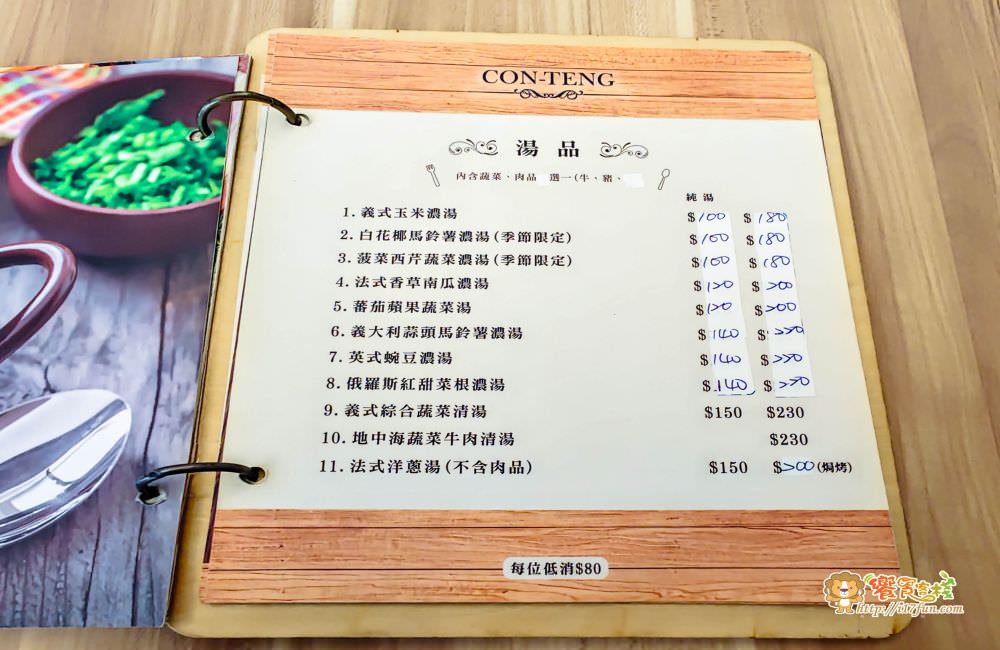 CON-TENG
湯品
內含蔬菜、肉品 選一(牛、豬、
純湯
1. 義式玉米濃湯 $100 $180
2. 白花椰馬鈴薯濃湯(季節限定) $100 $180
3. 菠菜西芹蔬菜濃湯(季節限定) $100 $180
4. 法式香草南瓜濃湯 $120 $200
5. 蕃茄蘋果蔬菜湯 $120 $200
6. 義大利蒜頭馬鈴薯濃湯 $140 $220
7. 英式蜿豆濃湯 $140 $220
8. 俄羅斯紅甜菜根濃湯 $140 $220
9. 義式綜合蔬菜清湯 $150 $230
10. 地中海蔬菜牛肉清湯 $230
11. 法式洋蔥湯(不含肉品) $150 $200(焗烤)
每位低消$80
饗食盡在
http://b17fun.com